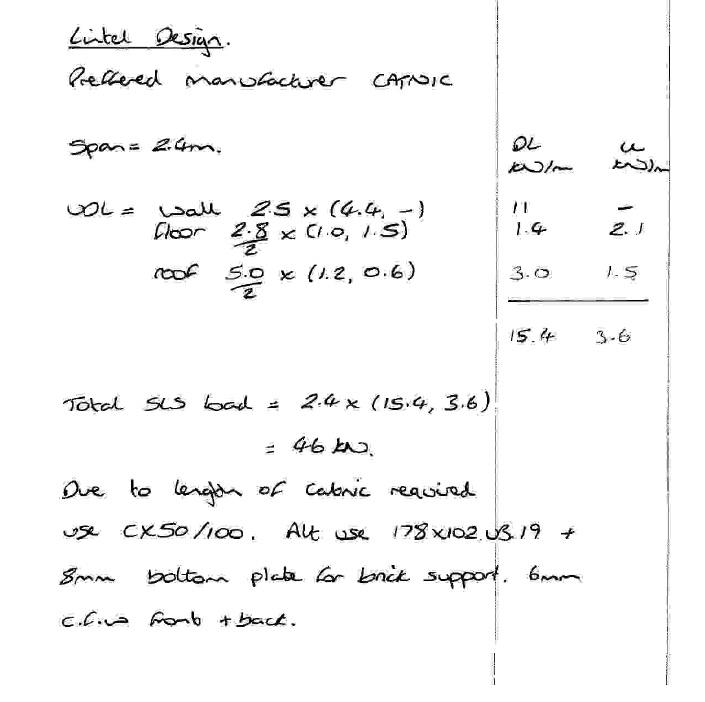 Lintel Design.
Preffered manufacturer CATNIC
Span = 2.4m. DL LL
kN/m kN/m
UDL = wall 2.5 x (4.4, -) 11 -
floor 2.8/2 x (1.0, 1.5) 1.4 2.1
roof 5.0/2 x (1.2, 0.6) 3.0 1.5
15.4 3.6
Total SLS load = 2.4 x (15.4, 3.6)
= 46 kN.
Due to length of Catnic required
use CX50/100. Alt use 178x102 UB.19 +
8mm bottom plate for brick support. 6mm
c.f.w front + back.